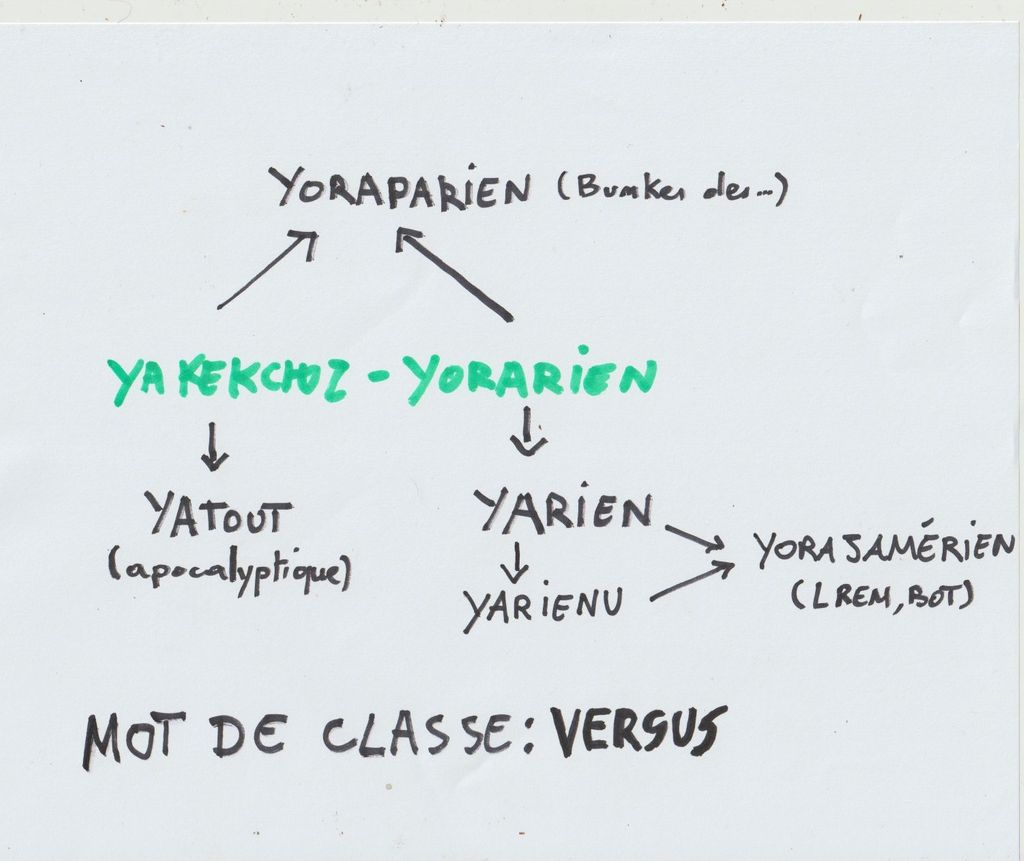 YORAPARIEN (Bunker des...)
YAKEKCHOZ - YORARIEN
YATOUT
(apocalyptique)
YARIEN
YARIENU
YORAJAMÉRIEN
(LREM, BOT)
MOT DE CLASSE: VERSUS